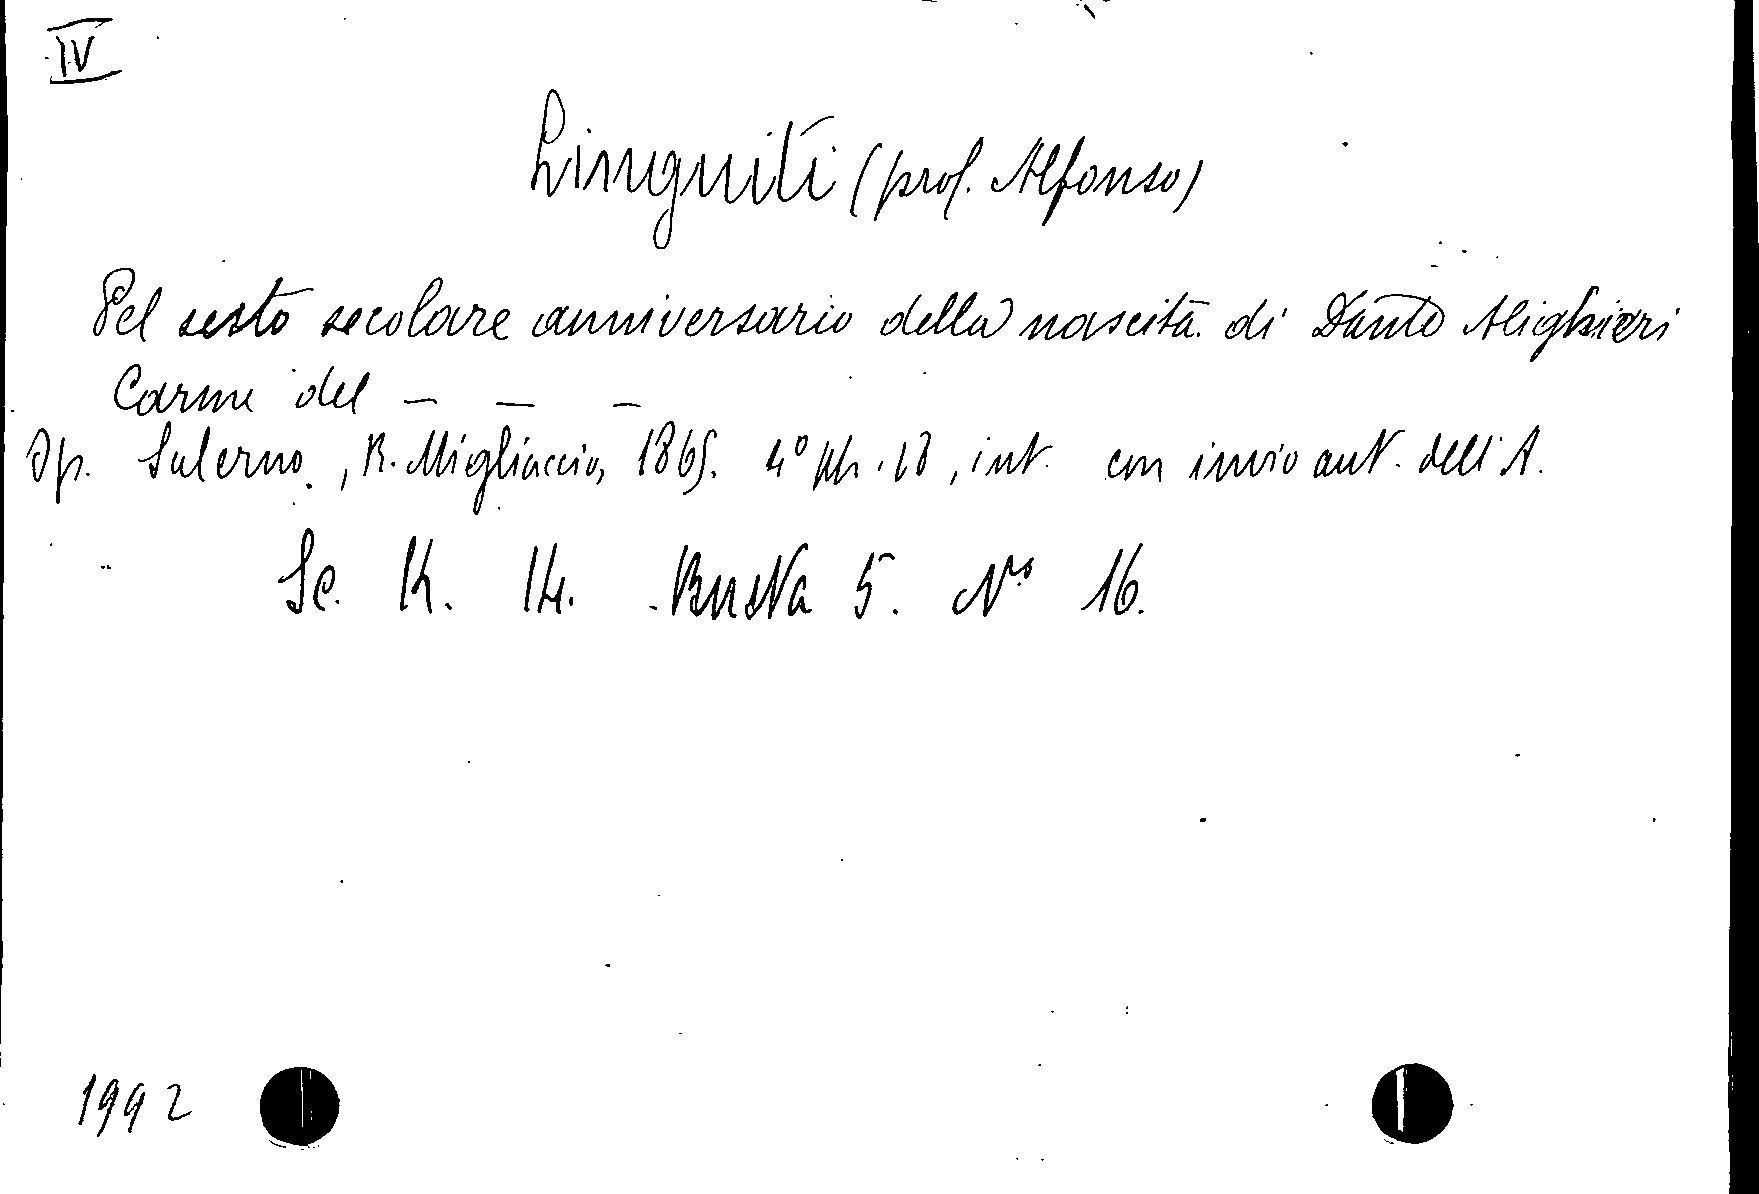 IV
Linguiti (prof. Alfonso)
Pel sesto secolare anniversario della nascita di Dante Alighieri
Carme del — — —
Op. Salerno, R. Migliaccio, 1865. 4° pp. 18, int. con invio aut. dell'A.
Sc. K. 14. Busta 5. No 16.
1992